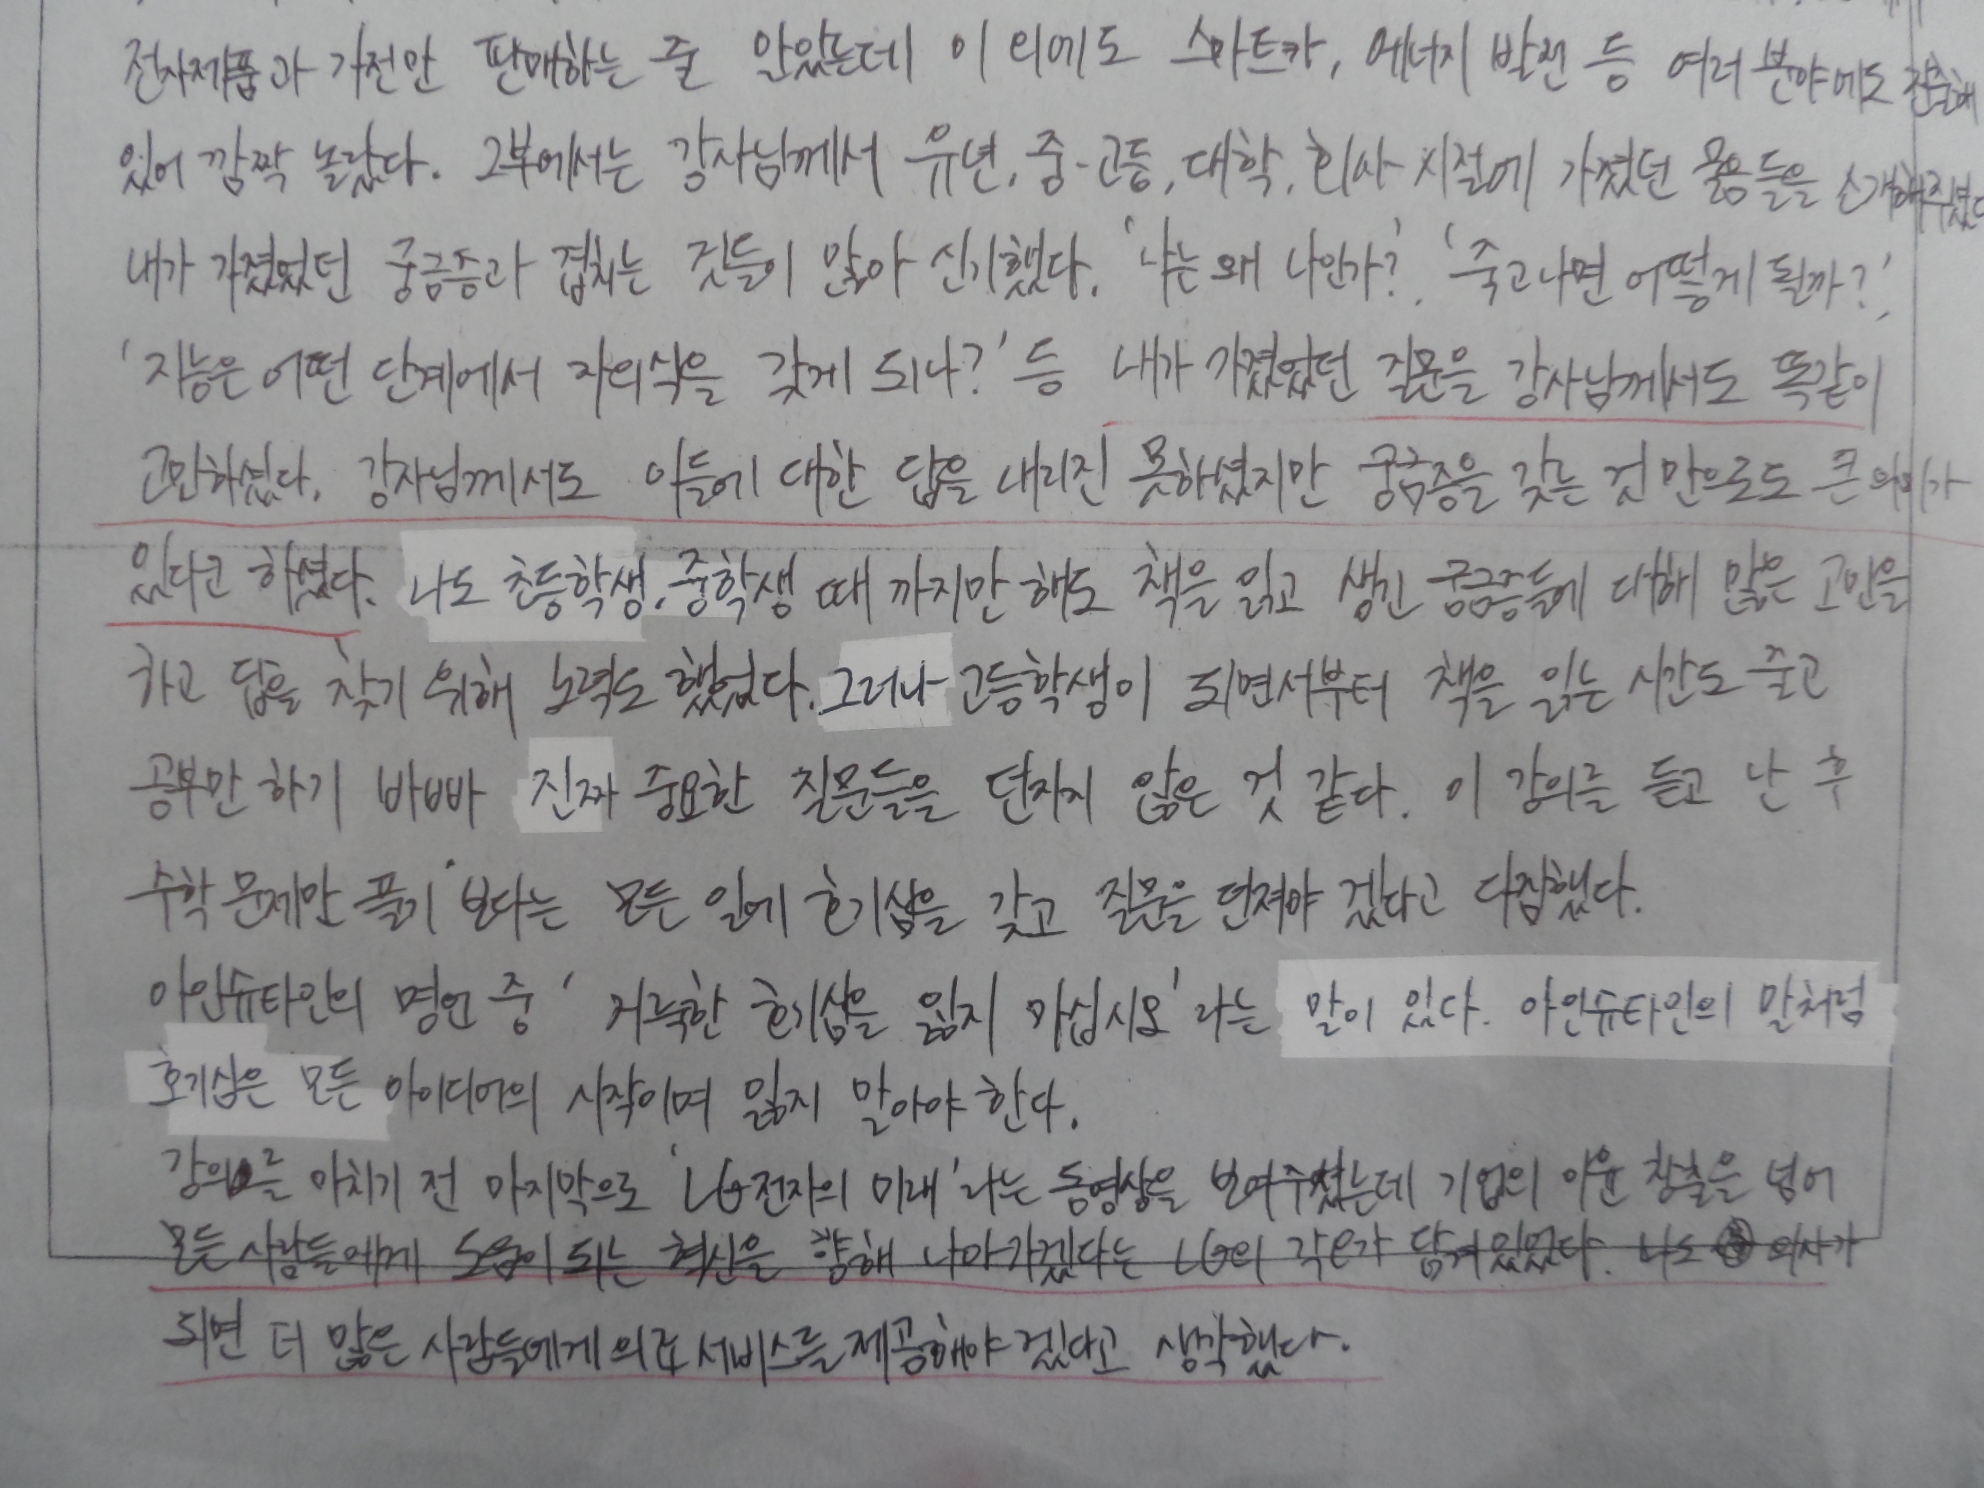 전자제품과 가전만 판매하는 줄 알았는데 이 외에도 스마트카, 에너지 발전 등 여러 분야에도 진출해
있어 깜짝 놀랐다. 2부에서는 강사님께서 유년, 중-고등, 대학, 회사 시절에 가졌던 물음들을 소개해주셨다
내가 가졌었던 궁금증과 겹치는 것들이 많아 신기했다. '나는 왜 나인가?', '죽고나면 어떻게 될까?',
'지능은 어떤 단계에서 자의식을 갖게 되나?' 등 내가 가졌었던 질문을 강사님께서도 똑같이
고민하셨다. 강사님께서도 이들에 대한 답을 내리진 못하셨지만 궁금증을 갖는 것 만으로도 큰 의미가
있다고 하셨다. 나도 초등학생, 중학생 때 까지만 해도 책을 읽고 생긴 궁금증들에 대해 많은 고민을
하고 답을 찾기 위해 노력도 했었다. 그러나 고등학생이 되면서부터 책을 읽는 시간도 줄고
공부만 하기 바빠 진짜 중요한 질문들을 던지지 않은 것 같다. 이 강의를 듣고 난 후
수학 문제만 풀기 보다는 모든 일에 호기심을 갖고 질문을 던져야 겠다고 다짐했다.
아인슈타인의 명언 중 '거룩한 호기심을 잃지 마십시오' 라는 말이 있다. 아인슈타인의 말처럼
호기심은 모든 아이디어의 시작이며 잃지 말아야 한다.
강의를 마치기 전 마지막으로 'LG전자의 미래' 라는 동영상을 보여주셨는데 기업의 이윤 창출을 넘어
모든 사람들에게 도움이 되는 혁신을 향해 나아가겠다는 LG의 각오가 담겨있었다. 나도 의사가
되면 더 많은 사람들에게 의료 서비스를 제공해야 겠다고 생각했다.